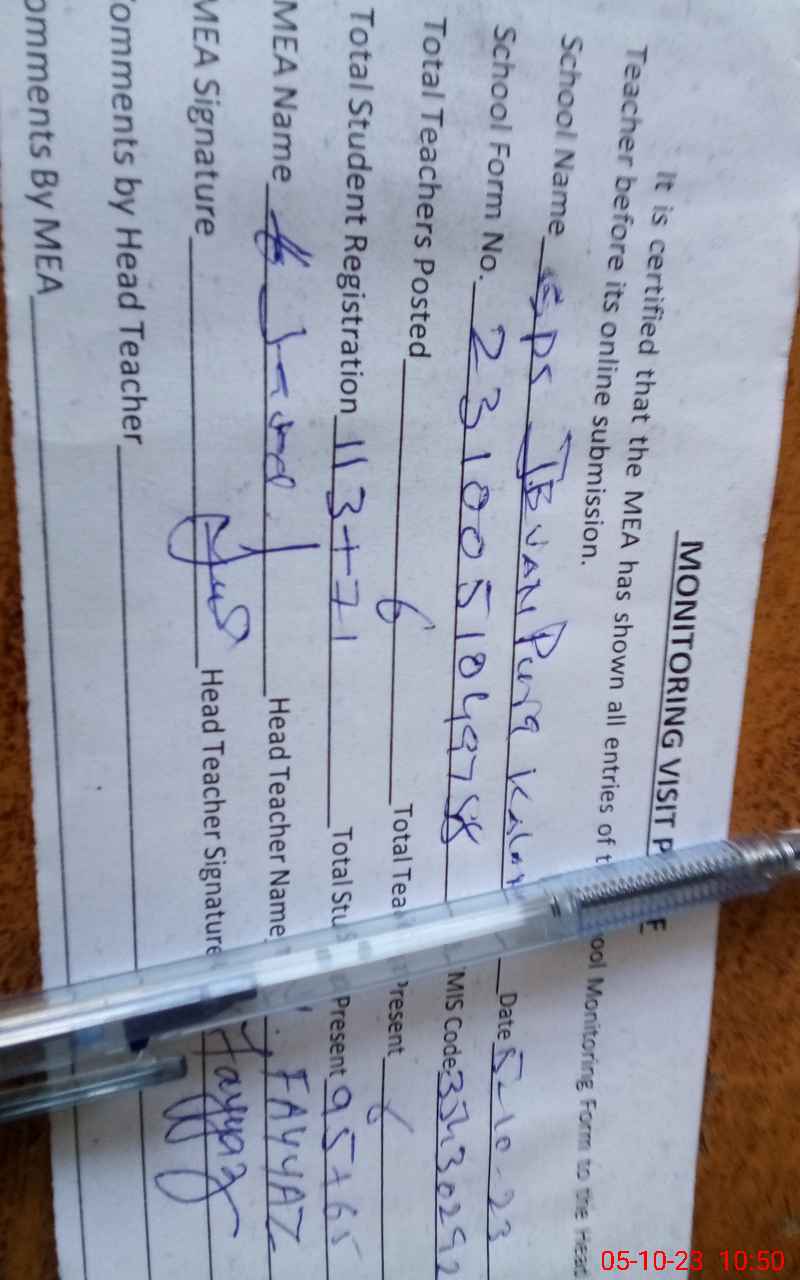 MONITORING VISIT P F
It is certified that the MEA has shown all entries of t ool Monitoring Form to the Head
Teacher before its online submission.
School Name GPS JBVAN Pura Date 5-10-23
School Form No. 2310051049758 MIS Code: 35430292
Total Teachers Posted 6 Total Tea Present 6
Total Student Registration 113+71 Total Stu Present 95+65
MEA Name Head Teacher Name FAYYAZ
MEA Signature Head Teacher Signature Fayyaz
omments by Head Teacher
omments By MEA
05-10-23 10:50